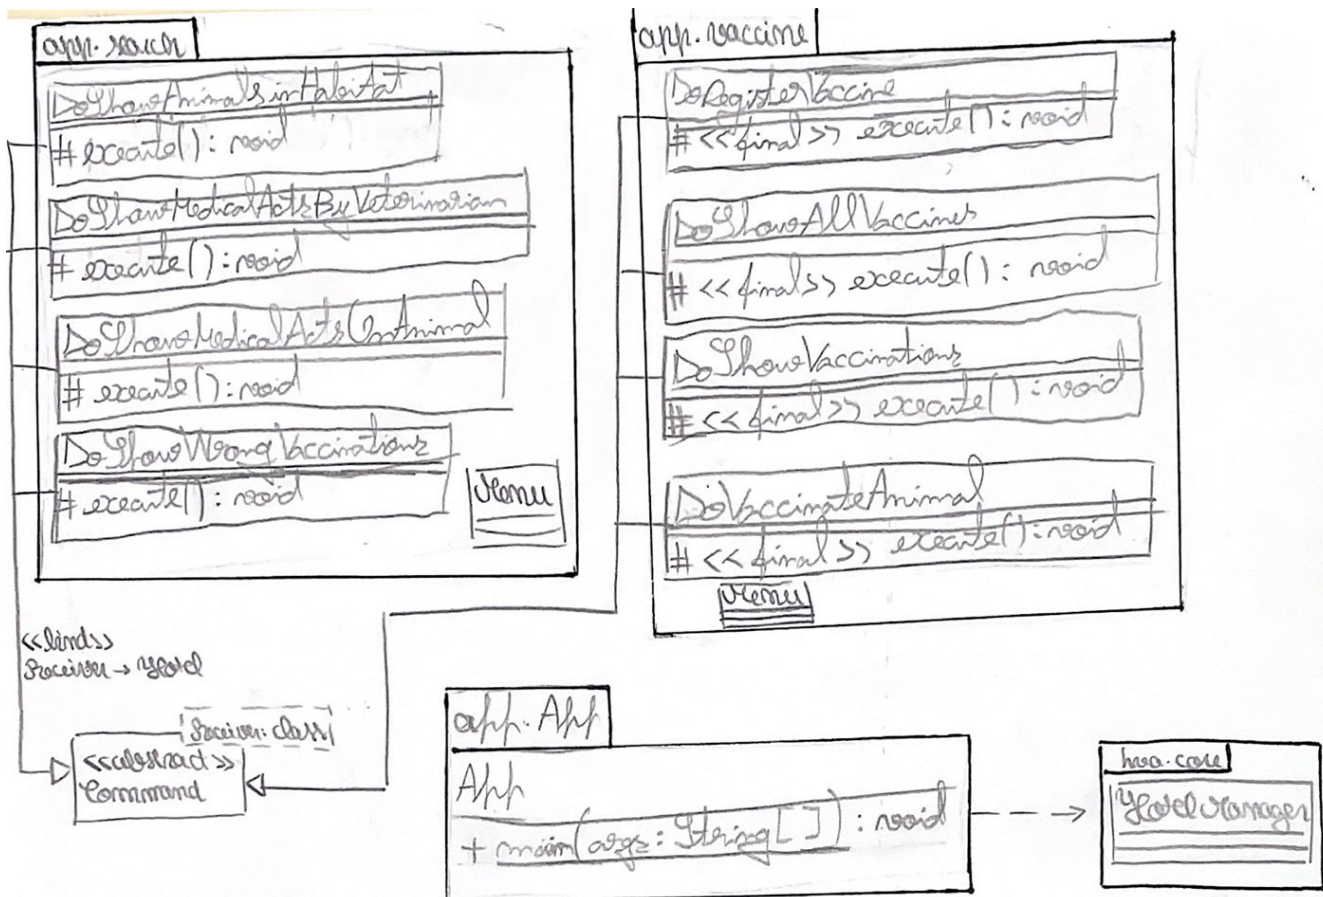 app.search
DoShowAnimalsinHabitat
# execute() : void
DoShowMedicalActsByVeterinarian
# execute() : void
DoShowMedicalActsOnAnimal
# execute() : void
DoShowWrongVaccinations
# execute() : void
Menu
app.vaccine
DoRegisterVaccine
# <<final>> execute() : void
DoShowAllVaccines
# <<final>> execute() : void
DoShowVaccinations
# <<final>> execute() : void
DoVaccinateAnimal
# <<final>> execute() : void
Menu
<<bind>>
Receiver → Hotel
Receiver: class
<<abstract>>
Command
app.App
App
+ main(args: String[]) : void
hva.core
HotelManager